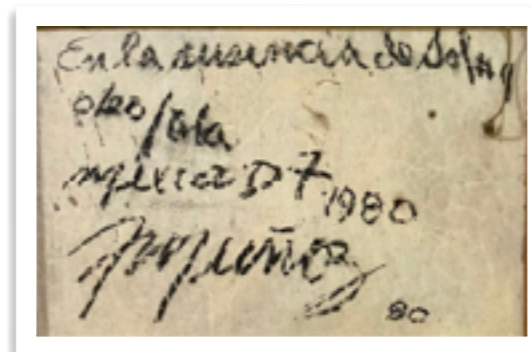 En la ausencia de Sofía
oleo/tela
méxico D F 1980
Muñoz
80